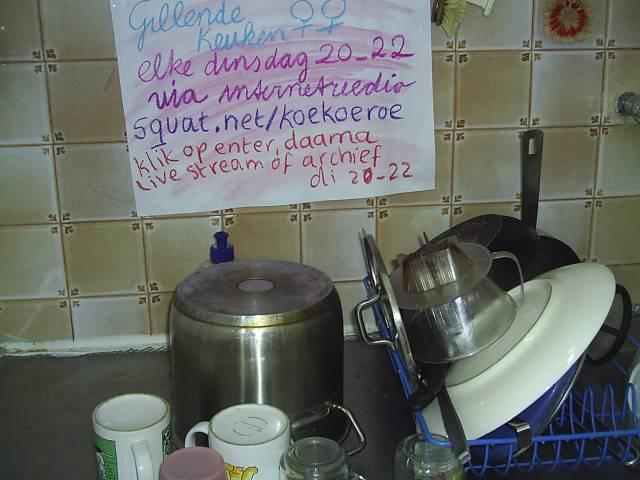 Gillende ♀♀
Keuken
elke dinsdag 20-22
via internetradio
squat.net/koekoeroe
klik op enter, daarna
live stream of archief
di 20-22